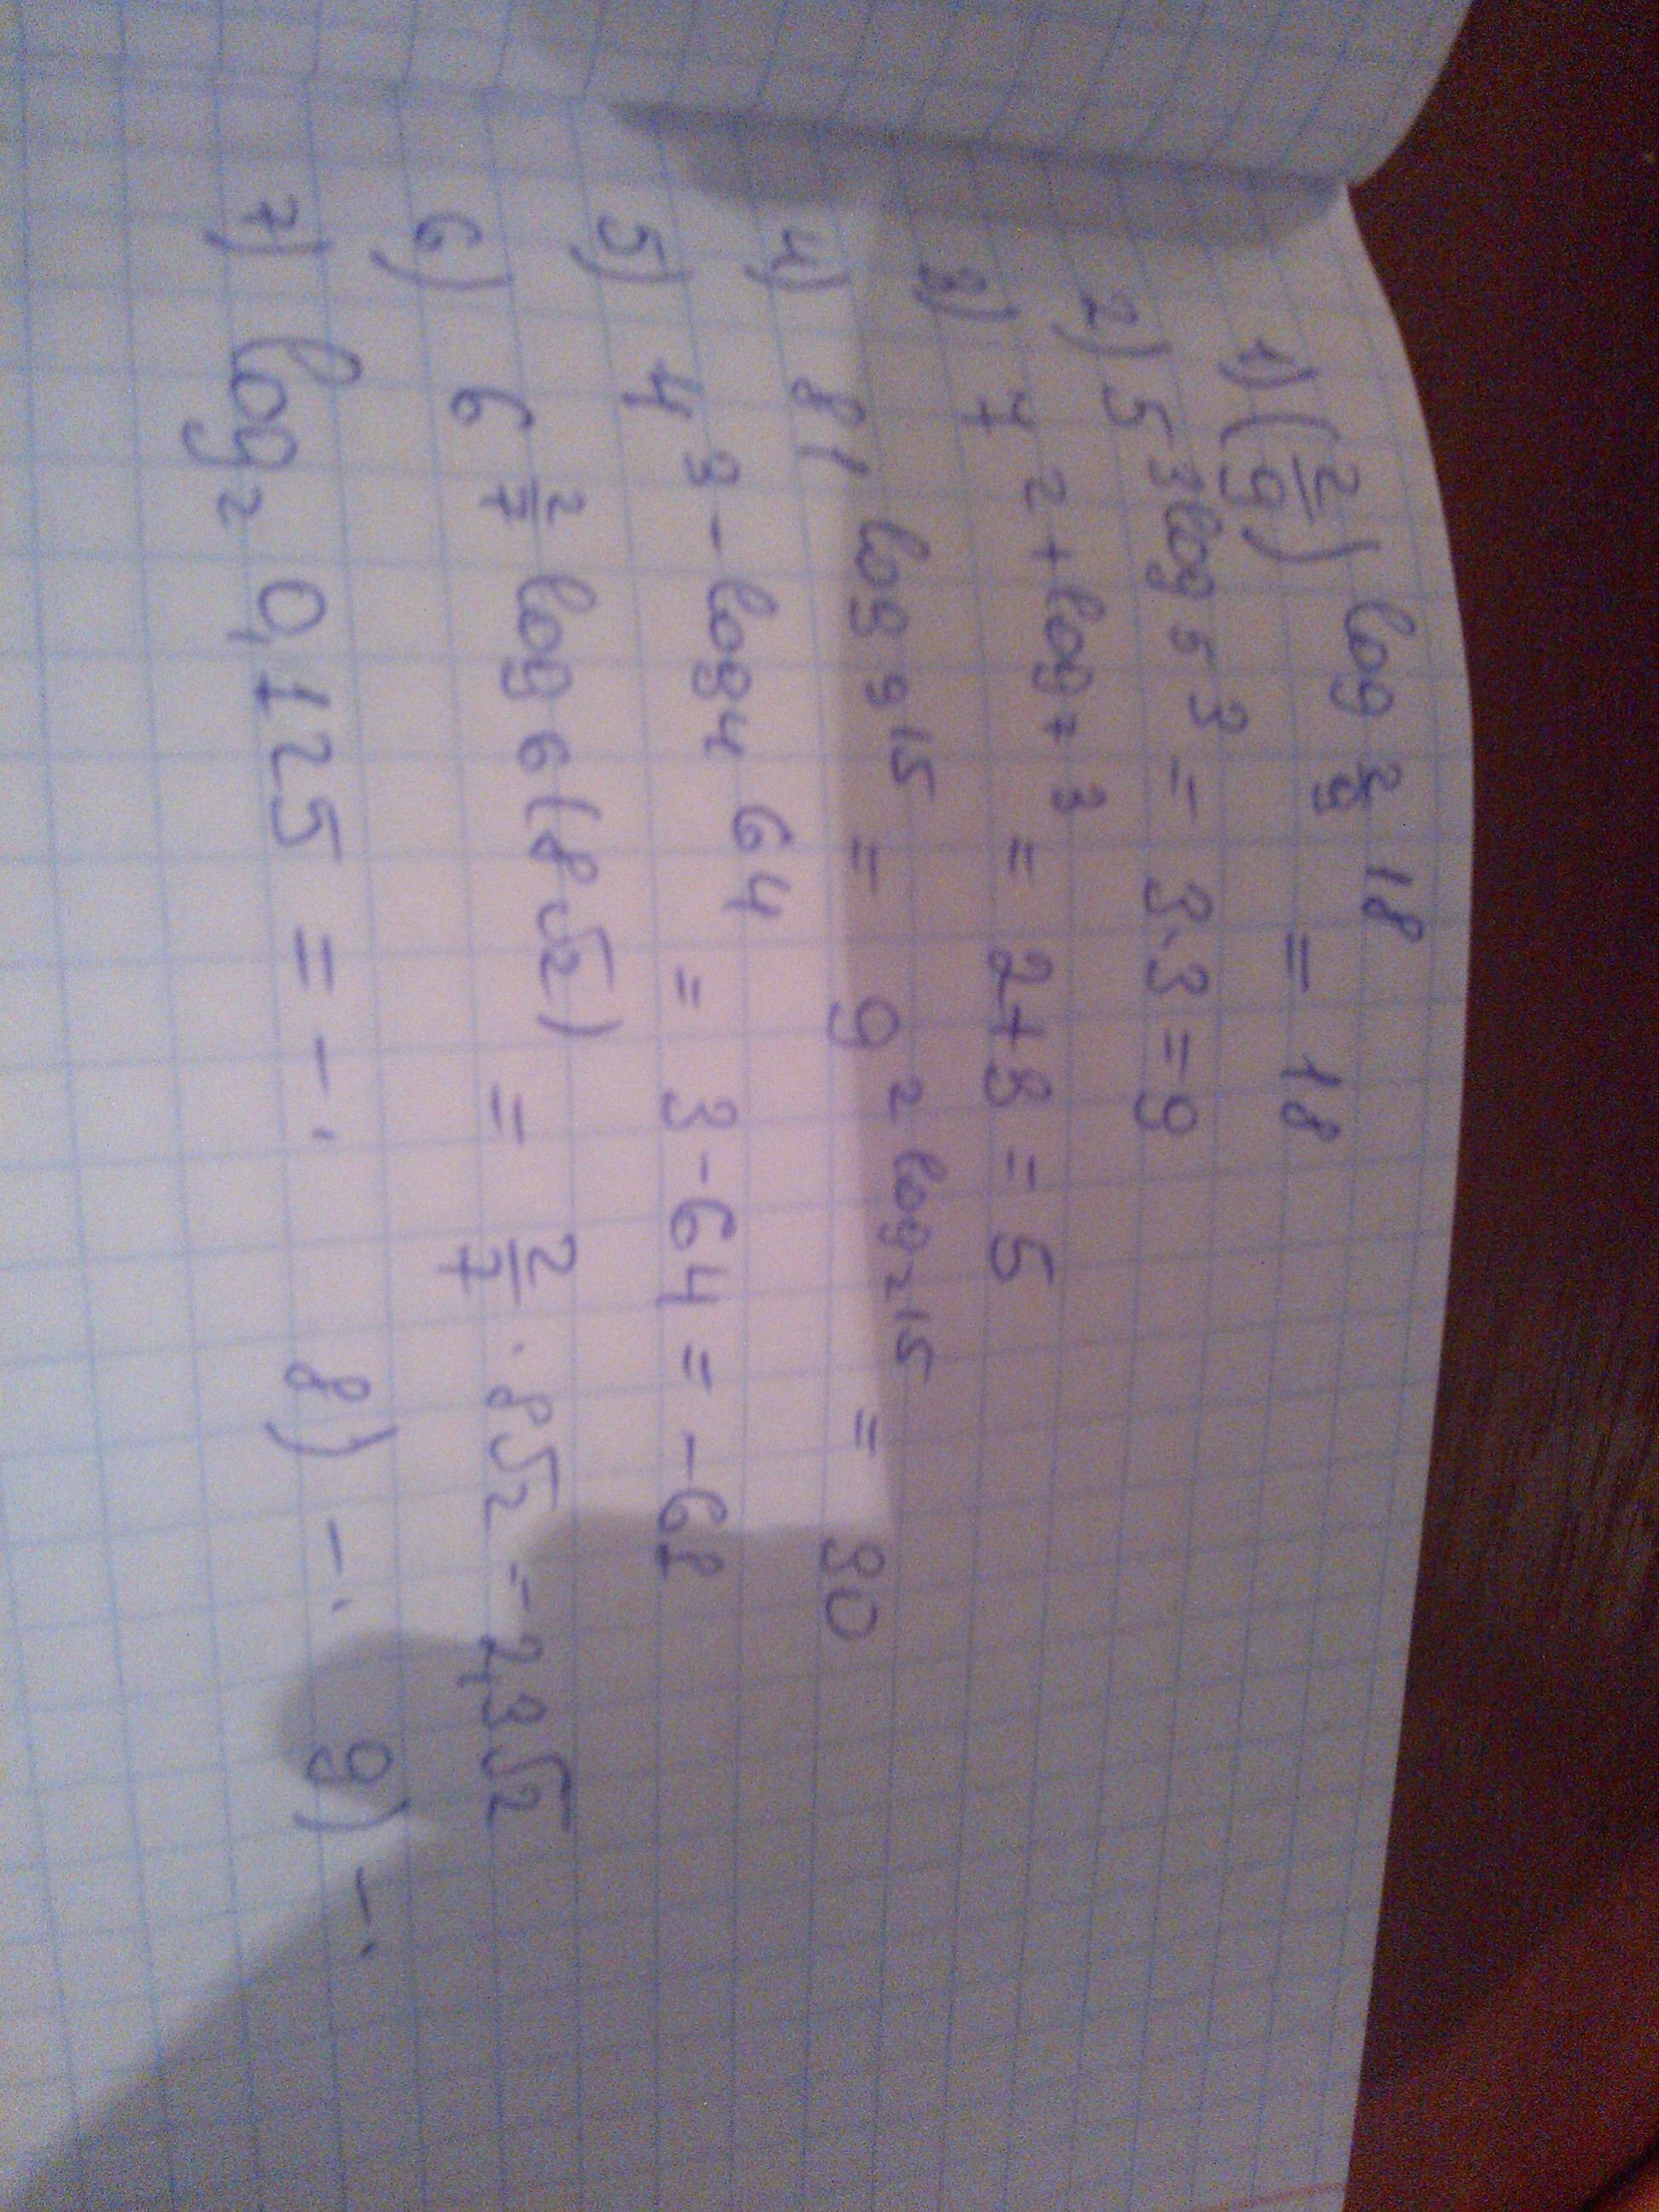 1) (2/9) log 2/9 18 = 18
2) 5 3log 5 3 = 3·3 = 9
3) 7 2 + log 7 3 = 2+3 = 5
4) 81 log 9 15 = 9 2 log 2 15 = 30
5) 4 3 - log 4 64 = 3 - 64 = - 61
6) 6 2/7 log 6 (8√2) = 2/7 · 8√2 = 2,3√2
7) log 2 0,125 = - . 8) - . 9) - .